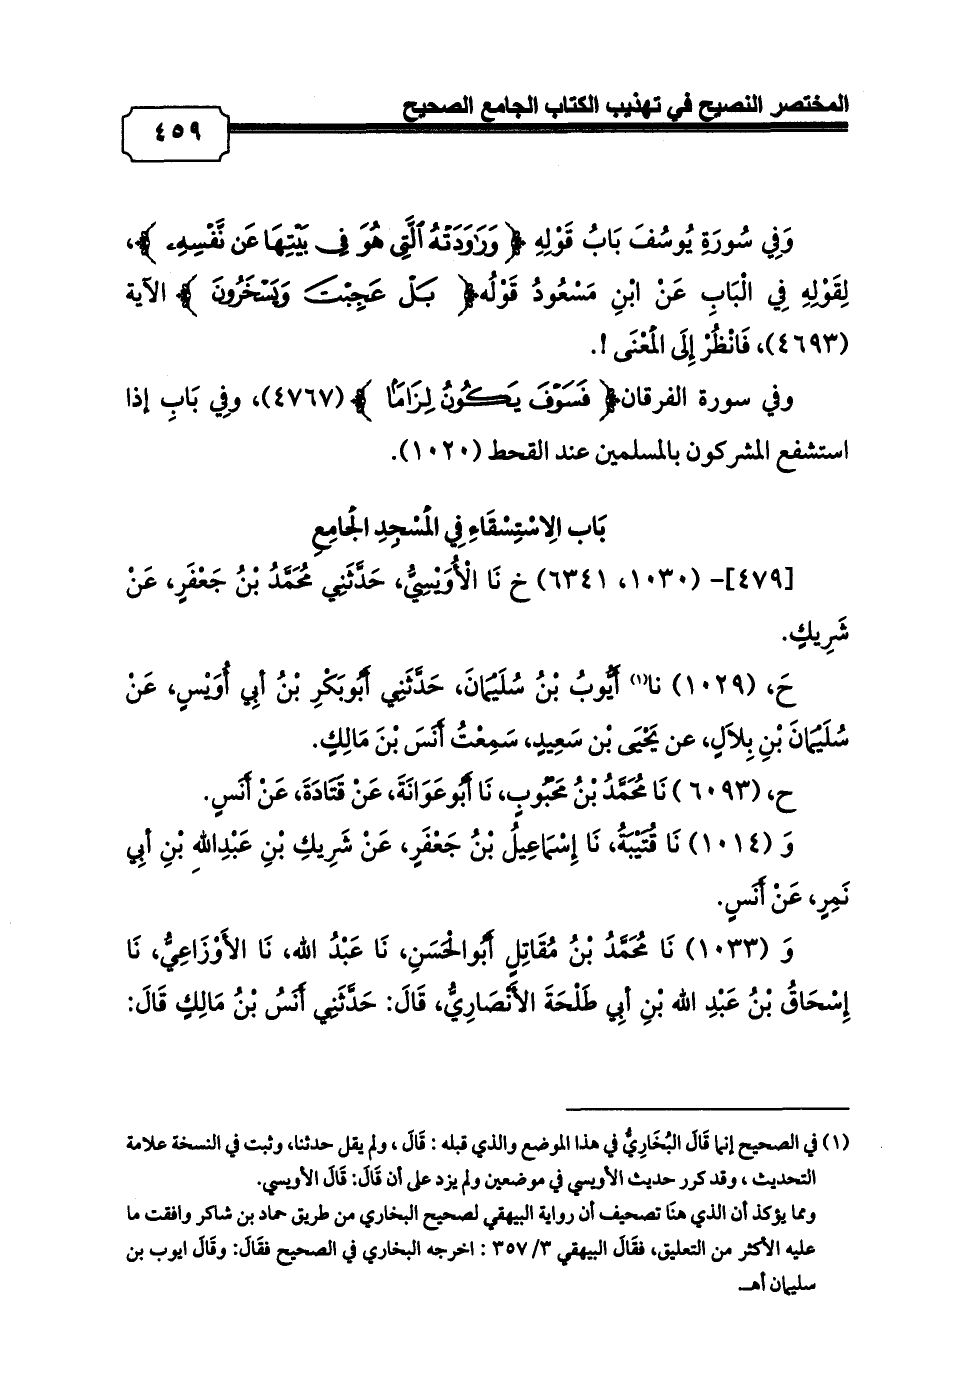 المختصر النصيح في تهذيب الكتاب الجامع الصحيح
٤٥٩
وَفِي سُورَةِ يُوسُفَ بَابُ قَوْلِهِ ﴿ وَرَاوَدَتْهُ ٱلَّتِي هُوَ فِي بَيْتِهَا عَن نَّفْسِهِ ﴾،
لِقَوْلِهِ فِي الْبَابِ عَنْ ابْنِ مَسْعُودُ قَوْلُه﴿ بَلْ عَجِبْتَ وَيَسْخَرُونَ ﴾ الآية
(٤٦٩٣)، فَانْظُرْ إِلَى الْمَعْنَى !.
وفي سورة الفرقان﴿ فَسَوْفَ يَكُونُ لِزَامًا ﴾ (٤٧٦٧)، وفِي بَابِ إذا
استشفع المشركون بالمسلمين عند القحط (١٠٢٠).
بَاب الِاسْتِسْقَاءِ فِي الْمَسْجِدِ الْجَامِعِ
[٤٧٩]- (١٠٣٠، ٦٣٤١) خ نَا الْأُوَيْسِيُّ، حَدَّثَنِي مُحَمَّدُ بْنُ جَعْفَرٍ، عَنْ
شَرِيكٍ.
حَ، (١٠٢٩) نا(١) أَيُّوبُ بْنُ سُلَيْمَانَ، حَدَّثَنِي أَبُوبَكْرِ بْنُ أبِي أُوَيْسٍ، عَنْ
سُلَيْمَانَ بْنِ بِلاَلٍ، عن يَحْيَى بْن سَعِيدٍ، سَمِعْتُ أَنَسَ بْنَ مَالِكٍ.
ح، (٦٠٩٣) نَا مُحَمَّدُ بْنُ مَحْبُوبٍ، نَا أَبُوعَوَانَةَ، عَنْ قَتَادَةَ، عَنْ أَنَسٍ.
وَ (١٠١٤) نَا قُتَيْبَةُ، نَا إِسْمَاعِيلُ بْنُ جَعْفَرٍ، عَنْ شَرِيكِ بْنِ عَبْدِاللهِ بْنِ أبِي
نَمِرٍ، عَنْ أَنَسٍ.
وَ (١٠٣٣) نَا مُحَمَّدُ بْنُ مُقَاتِلٍ أَبُوالْحَسَنِ، نَا عَبْدُ الله، نَا الأَوْزَاعِيُّ، نَا
إِسْحَاقُ بْنُ عَبْدِ الله بْنِ أبِي طَلْحَةَ الأَنْصَارِيُّ، قَالَ: حَدَّثَنِي أَنَسُ بْنُ مَالِكٍ قَالَ:
(١) في الصحيح إنما قَالَ البُخَارِيُّ في هذا الموضع والذي قبله : قَالَ ، ولم يقل حدثنا، وثبت في النسخة علامة
التحديث ، وقد كرر حديث الأويسي في موضعين ولم يزد على أن قَالَ: قَالَ الأويسي.
ومما يؤكد أن الذي هنا تصحيف أن رواية البيهقي لصحيح البخاري من طريق حماد بن شاكر وافقت ما
عليه الأكثر من التعليق، فقَالَ البيهقي ٣/ ٣٥٧ : اخرجه البخاري في الصحيح فقَالَ: وقَالَ ايوب بن
سليمان أهـ